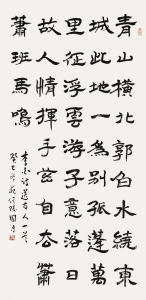 青山橫北郭白水繞東
城此地一為別孤蓬萬
里征浮雲游子意落日
故人情揮手茲自去蕭
蕭班馬鳴
李白詩送友人一首
癸巳冬